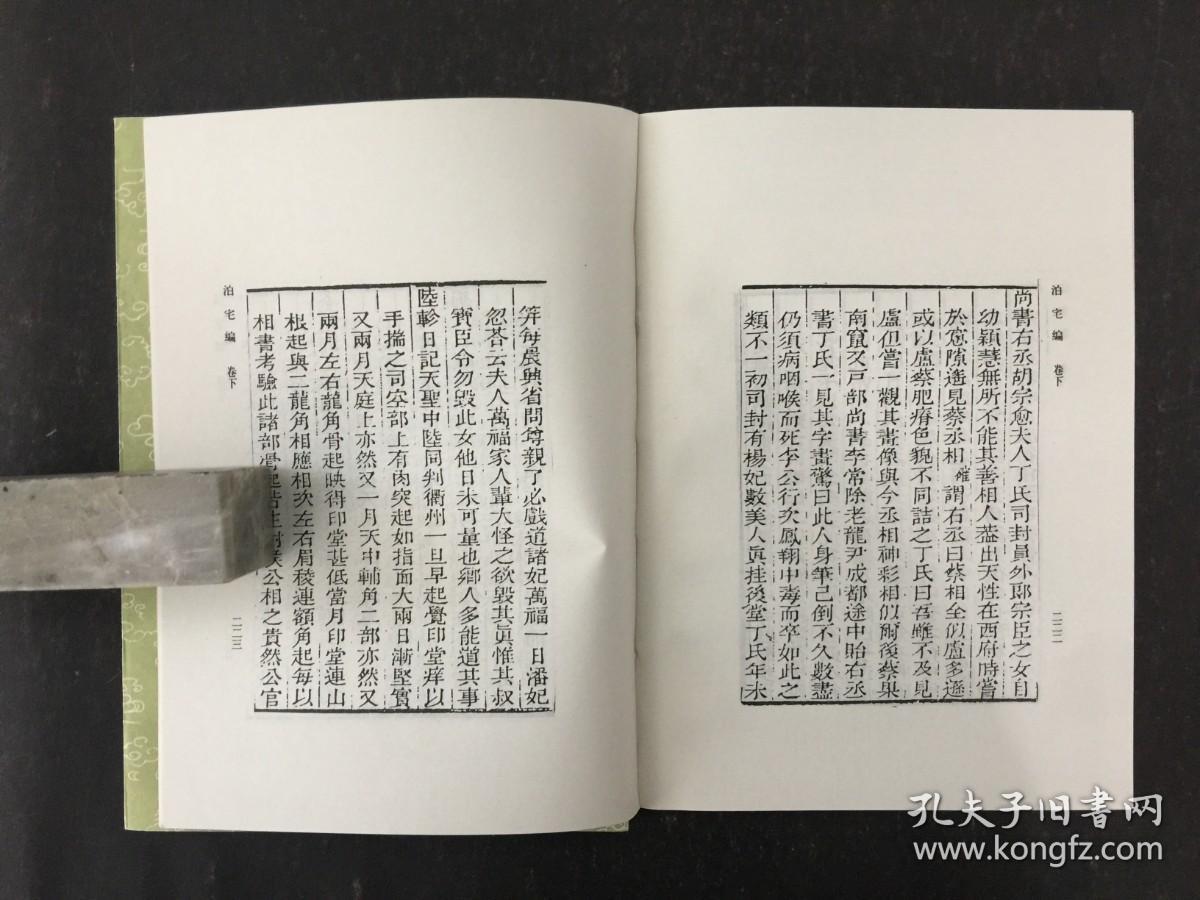 泊宅編 卷下
二二二
尚書右丞胡宗愈夫人丁氏司封員外郎宗臣之女自
幼穎慧無所不能其善相人蓋出天性在西府時嘗
於窓隙遙見蔡丞相確謂右丞曰蔡相全似盧多遜
或以盧蔡肥瘠色貌不同詰之丁氏曰吾雖不及見
盧但嘗一觀其畫像與今丞相神彩相似爾後蔡果
南竄又戸部尚書李常除老龍尹成都途中貽右丞
書丁氏一見其字畫驚曰此人身筆已倒不久數盡
仍須病咽喉而死李公行次鳳翔中毒而卒如此之
類不一初司封有楊妃數美人眞挂後堂丁氏年未
笄每晨興省問尊親了必戲道諸妃萬福一日潘妃
忽荅云夫人萬福家人輩大怪之欲毀其眞惟其叔
寳臣令勿毀此女他日未可量也鄉人多能道其事
陸軫日記天聖中陸同判衢州一旦早起覺印堂痒以
手揣之司空部上有肉突起如指面大兩日漸堅實
又兩月天庭上亦然又一月天中輔角二部亦然又
兩月左右龍角骨起映得印堂甚低當月印堂連山
根起與二龍角相應相次左右眉稜連額角起每以
相書考驗此諸部骨起皆主封侯公相之貴然公官
泊宅編 卷下
二二三
孔夫子旧书网
www.kongfz.com